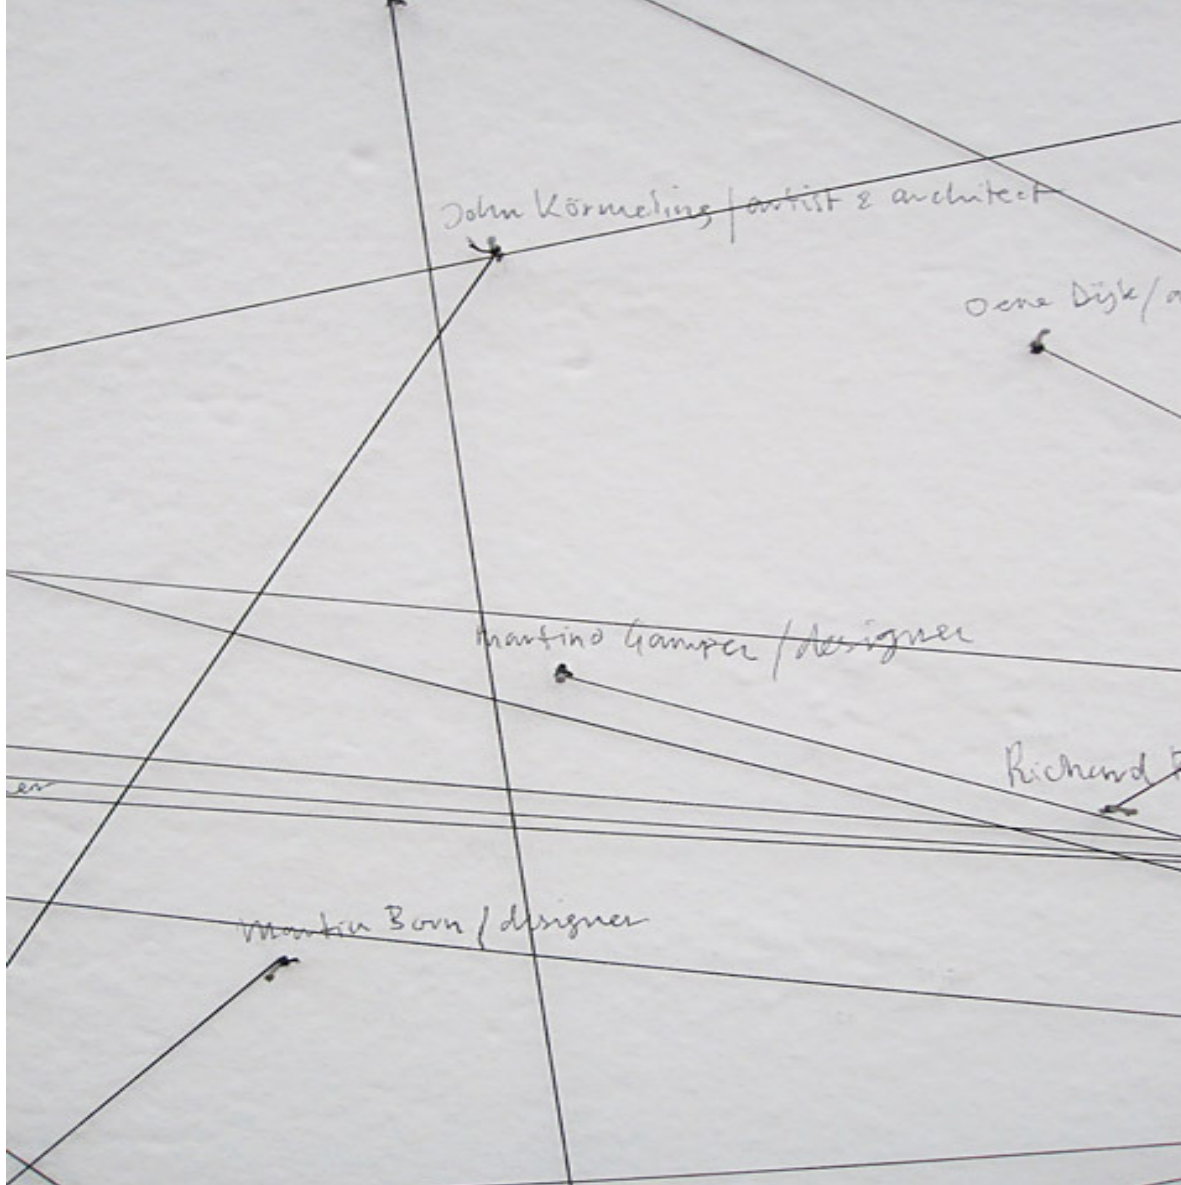 John Körmeling / artist & architect
Oene Dijk / a
Martino Gamper / designer
Richard
er
Martin Born / designer